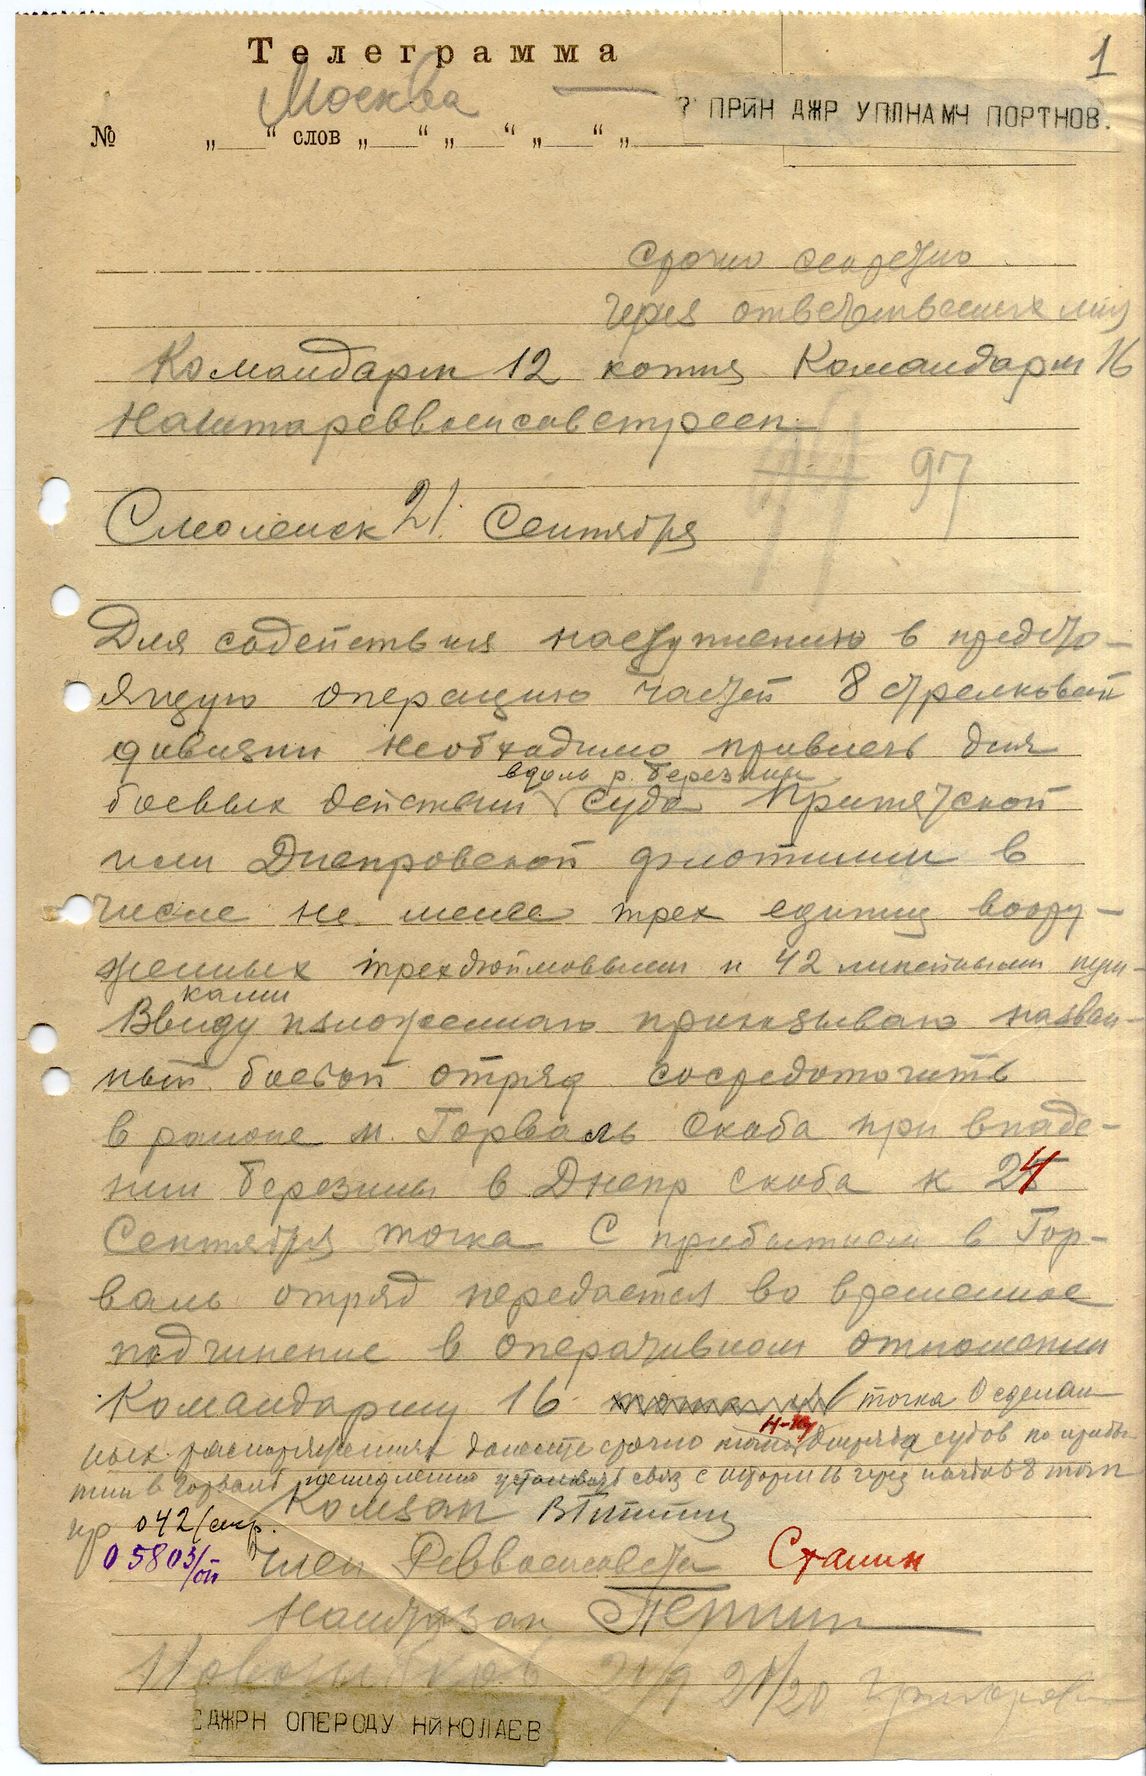 Телеграмма
1
Москва
ПРИН ДЖР УПЛНАМЧ ПОРТНОВ.
№ „ “ слов „ “ „ “ „ “ „
срочно секретно
через ответственных лиц
Командарм 12 копия Командарм 16
Наштареввоенсоветресп
97
Смоленск 21. Сентября
Для содействия наступлению в предсто-
ящую операцию частей 8 стрелковой
дивизии необходимо привлечь для
вдоль р. Березины
боевых действий суда Припятской
или Днепровской флотилии в
числе не менее трех единиц воору-
женных трехдюймовыми и 42 линейными пуш-
ками
Ввиду изложенного приказываю назван-
ный боевой отряд сосредоточить
в районе м. Горваль скоба при впаде-
нии Березины в Днепр скоба к 24
Сентября точка С прибытием в Гор-
валь отряд передается во временное
подчинение в оперативном отношении
Командарму 16 точка О сделан-
ных распоряжениях донести срочно
Н-ку отряда судов по прибы-
тии в Горваль немедленно установить связь с штармом 16 через начдив 8 точка
Комзап ВГиттис
нр 042/сек.
05803/оп
Член Реввоенсовета Сталин
Наштазап
21/9 21/20
ДЖРН ОПЕРОДУ НИКОЛАЕВ